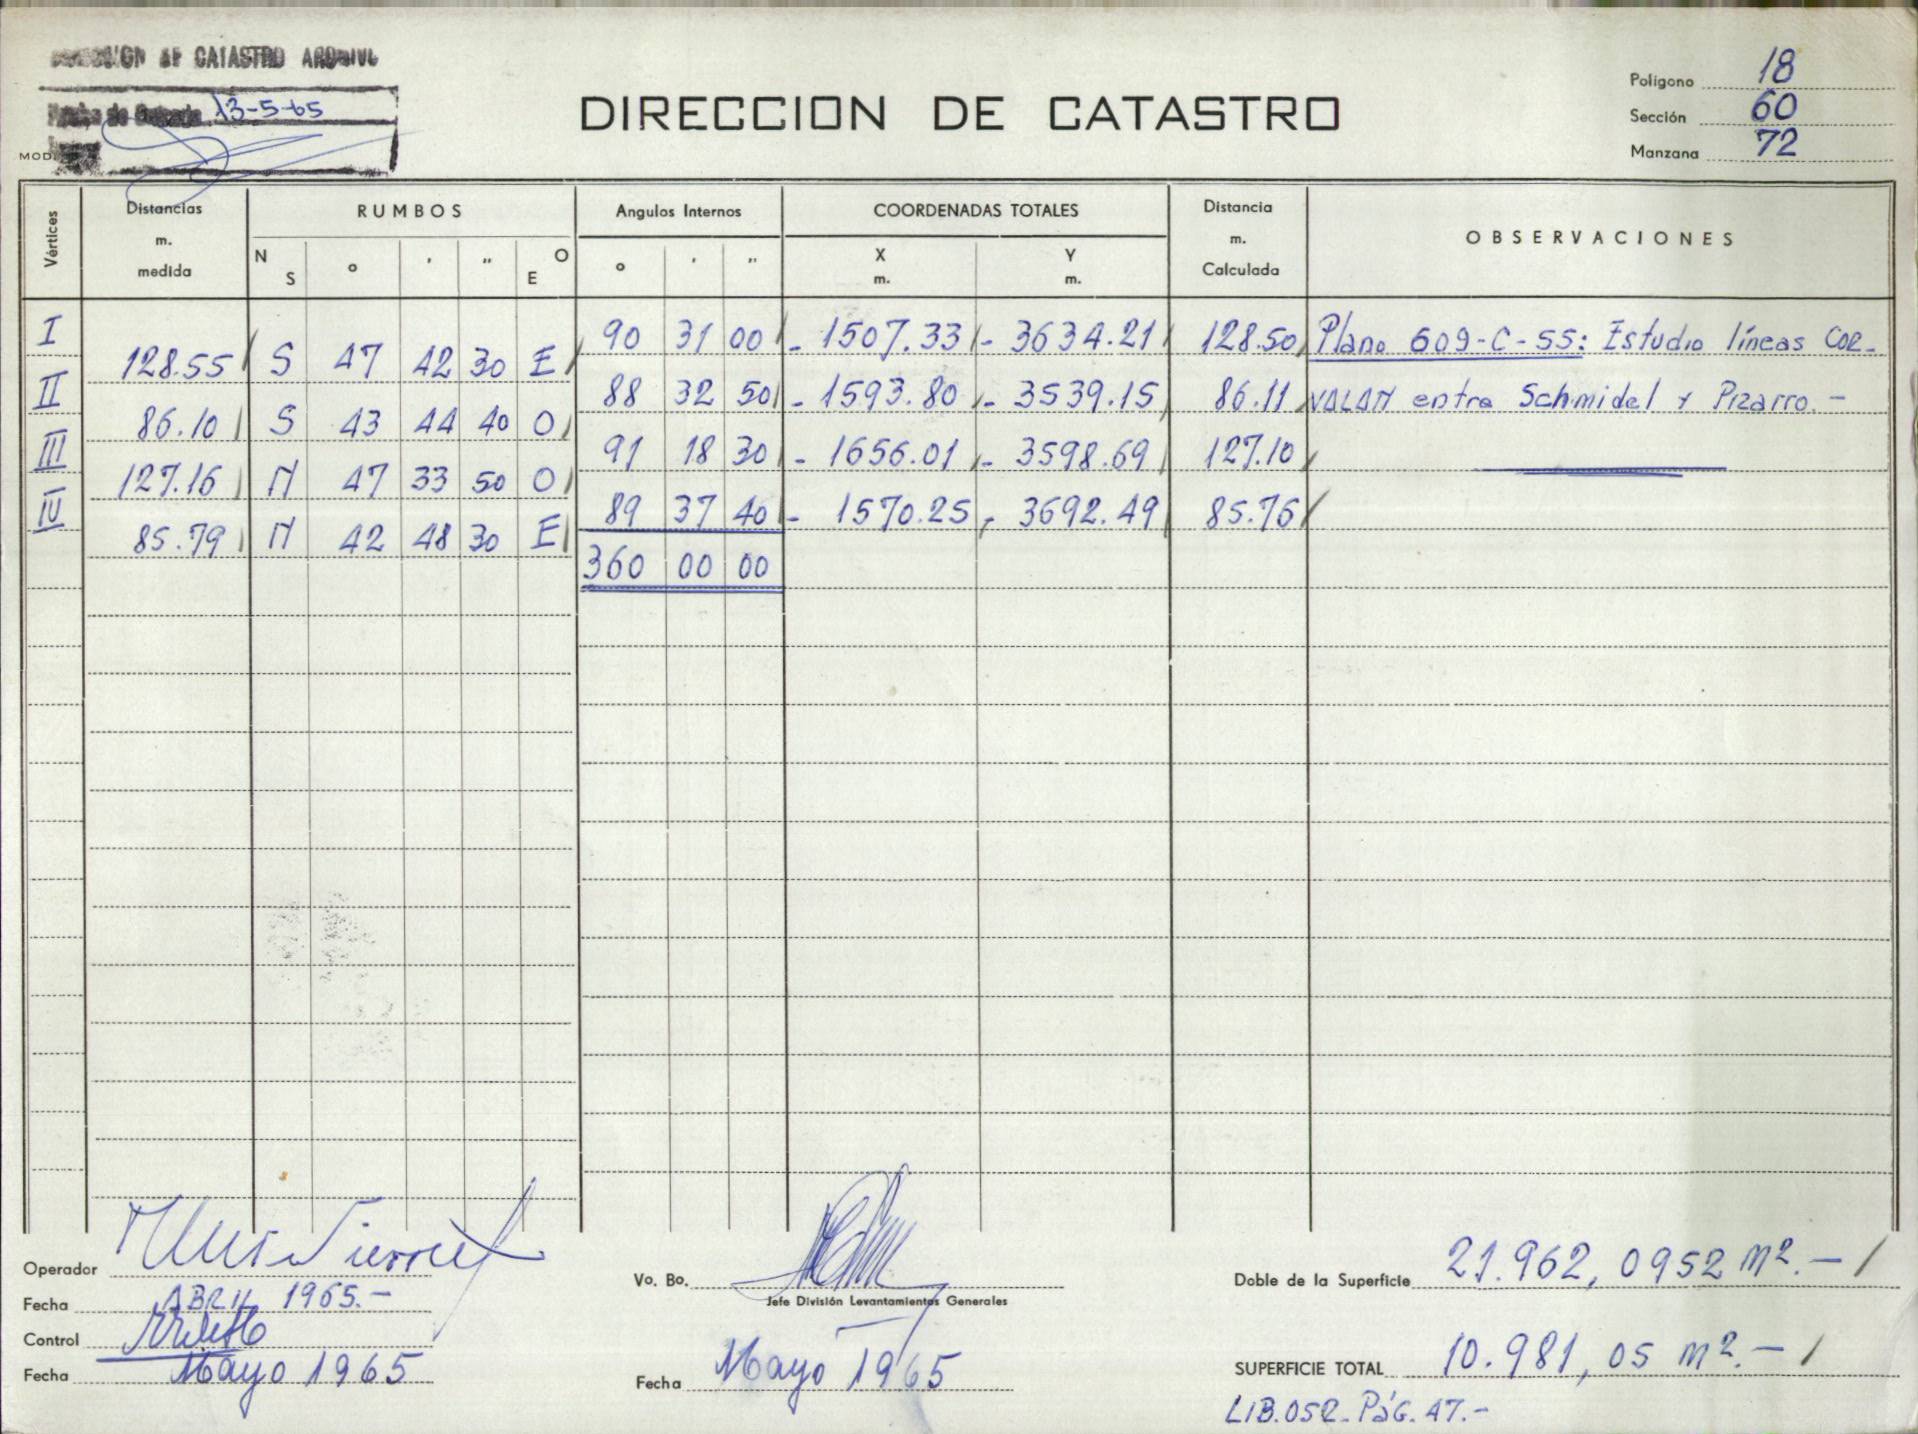 CATASTRO ARCHIVO
13-5-65
DIRECCION DE CATASTRO
Polígono 18
Sección 60
Manzana 72
Vértices
Distancias m. medida
RUMBOS
N S ° ' " O E
Angulos Internos
° ' "
COORDENADAS TOTALES
X m. Y m.
Distancia m. Calculada
OBSERVACIONES
I 90 31 00 - 1507.33 - 3634.21 128.50 Plano 609-C-55: Estudio líneas COR-
128.55 S 47 42 30 E
II 88 32 50 - 1593.80 - 3539.15 86.11 VALAN entre Schmidel y Pizarro.-
86.10 S 43 44 40 O
III 91 18 30 - 1656.01 - 3598.69 127.10
127.16 N 47 33 50 O
IV 89 37 40 - 1570.25 - 3692.49 85.76
85.79 N 42 48 30 E
360 00 00
Operador
Fecha ABRIL 1965.-
Control
Fecha Mayo 1965
Vo. Bo.
Jefe División Levantamientos Generales
Fecha Mayo 1965
Doble de la Superficie 21.962,0952 m².-
SUPERFICIE TOTAL 10.981,05 m².-
LIB.052-PáG.47.-